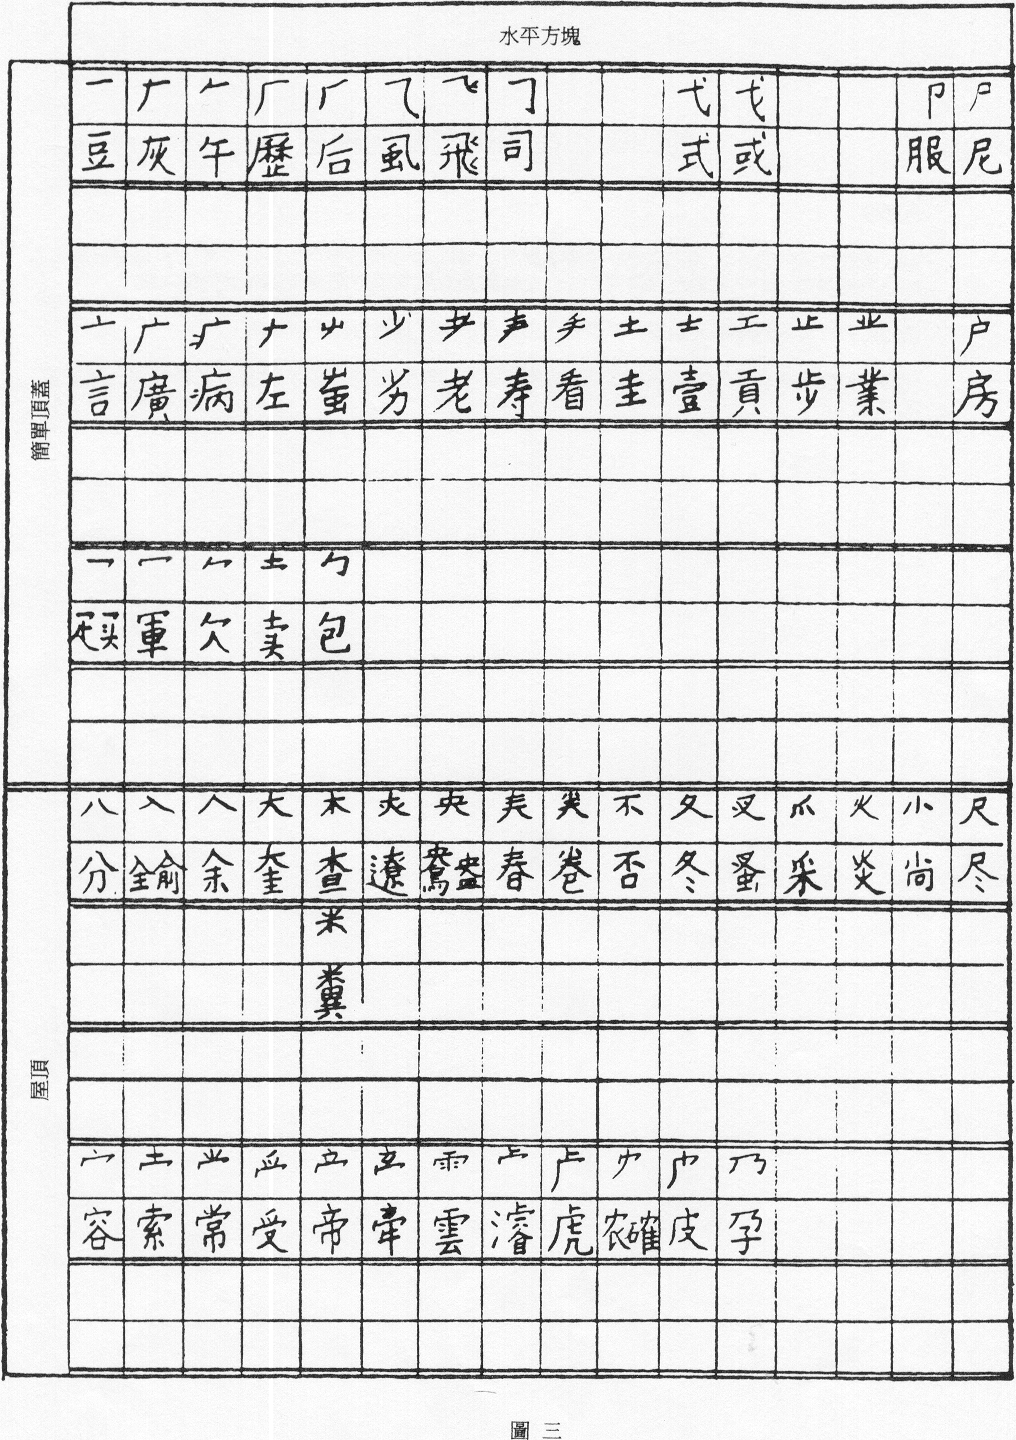 水平方塊
簡單頂蓋
一 ナ 𠂉 厂 𠂆 ⺄ 乁 𠃌 弋 戈 卩 尸
豆 灰 午 歷 后 虱 飛 司 式 或 服 尼
亠 广 疒 𠂇 屮 少 耂 龵 土 士 工 止 业 户
言 廣 病 左 蚩 劣 老 寿 看 圭 壹 貢 步 業 房
乛 冖 𠂊 士 勹
疋买 軍 欠 卖 包
屋頂
八 入 人 大 木 央 𡗗 龹 不 夂 叉 爪 火 小 尺
分 全俞 余 奎 查 遼 鴦盎 春 卷 否 冬 蚤 采 炎 尚 尽
米
糞
宀 雨 虍 乃
容 索 常 受 帝 牽 雲 濬 虎 农確 皮 孕
圖 三